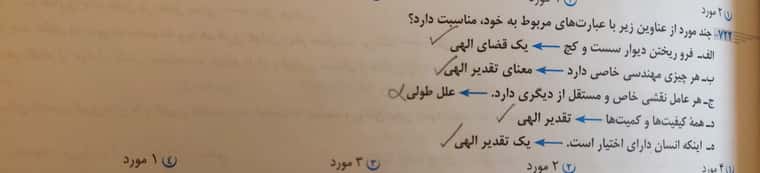 ۱) ۲ مورد
۷۲۲- چند مورد از عناوین زیر با عبارت‌های مربوط به خود، مناسبت دارد؟
الف- فرو ریختن دیوار سست و کج ← یک قضای الهی
ب- هر چیزی مهندسی خاصی دارد ← معنای تقدیر الهی
ج- هر عامل نقشی خاص و مستقل از دیگری دارد. ← علل طولی
د- همهٔ کیفیت‌ها و کمیت‌ها ← تقدیر الهی
ه- اینکه انسان دارای اختیار است. ← یک تقدیر الهی
۱) ۴ مورد ۲) ۲ مورد ۳) ۳ مورد ۴) ۱ مورد